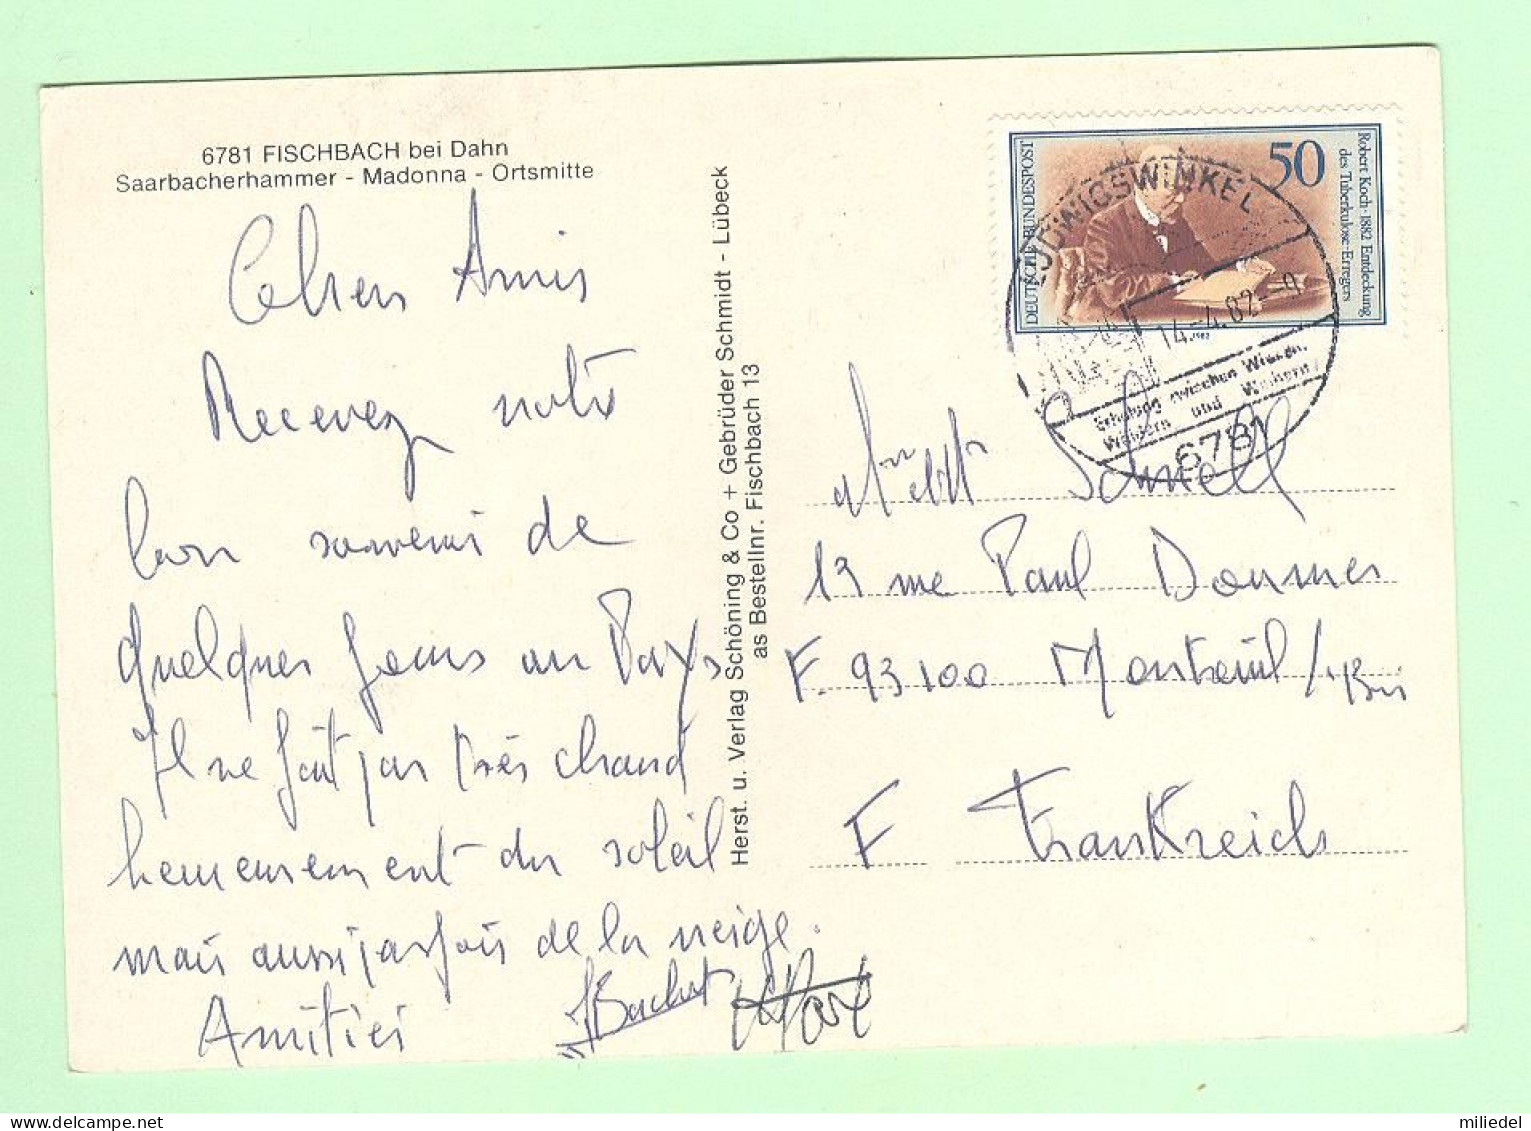 6781 FISCHBACH bei Dahn
Saarbacherhammer - Madonna - Ortsmitte
Chers Amis
Recevez notre
bon souvenir de
quelques jours au Pays
Il ne fait pas très chaud
heureusement du soleil
mais aussi parfois de la neige.
Amitiés
Herst. u. Verlag Schöning & Co + Gebrüder Schmidt - Lübeck
as Bestellnr. Fischbach 13
DEUTSCHE BUNDESPOST
50
Robert Koch · 1882 Entdeckung
des Tuberkulose-Erregers
1982
LUDWIGSWINKEL
14.-4.82-9
Erholung zwischen Wiesen,
Wäldern und Weihern
6781
Schnell
13 rue Paul Doumer
F. 93100 Montreuil / s/Bois
F Frankreich
miliedel